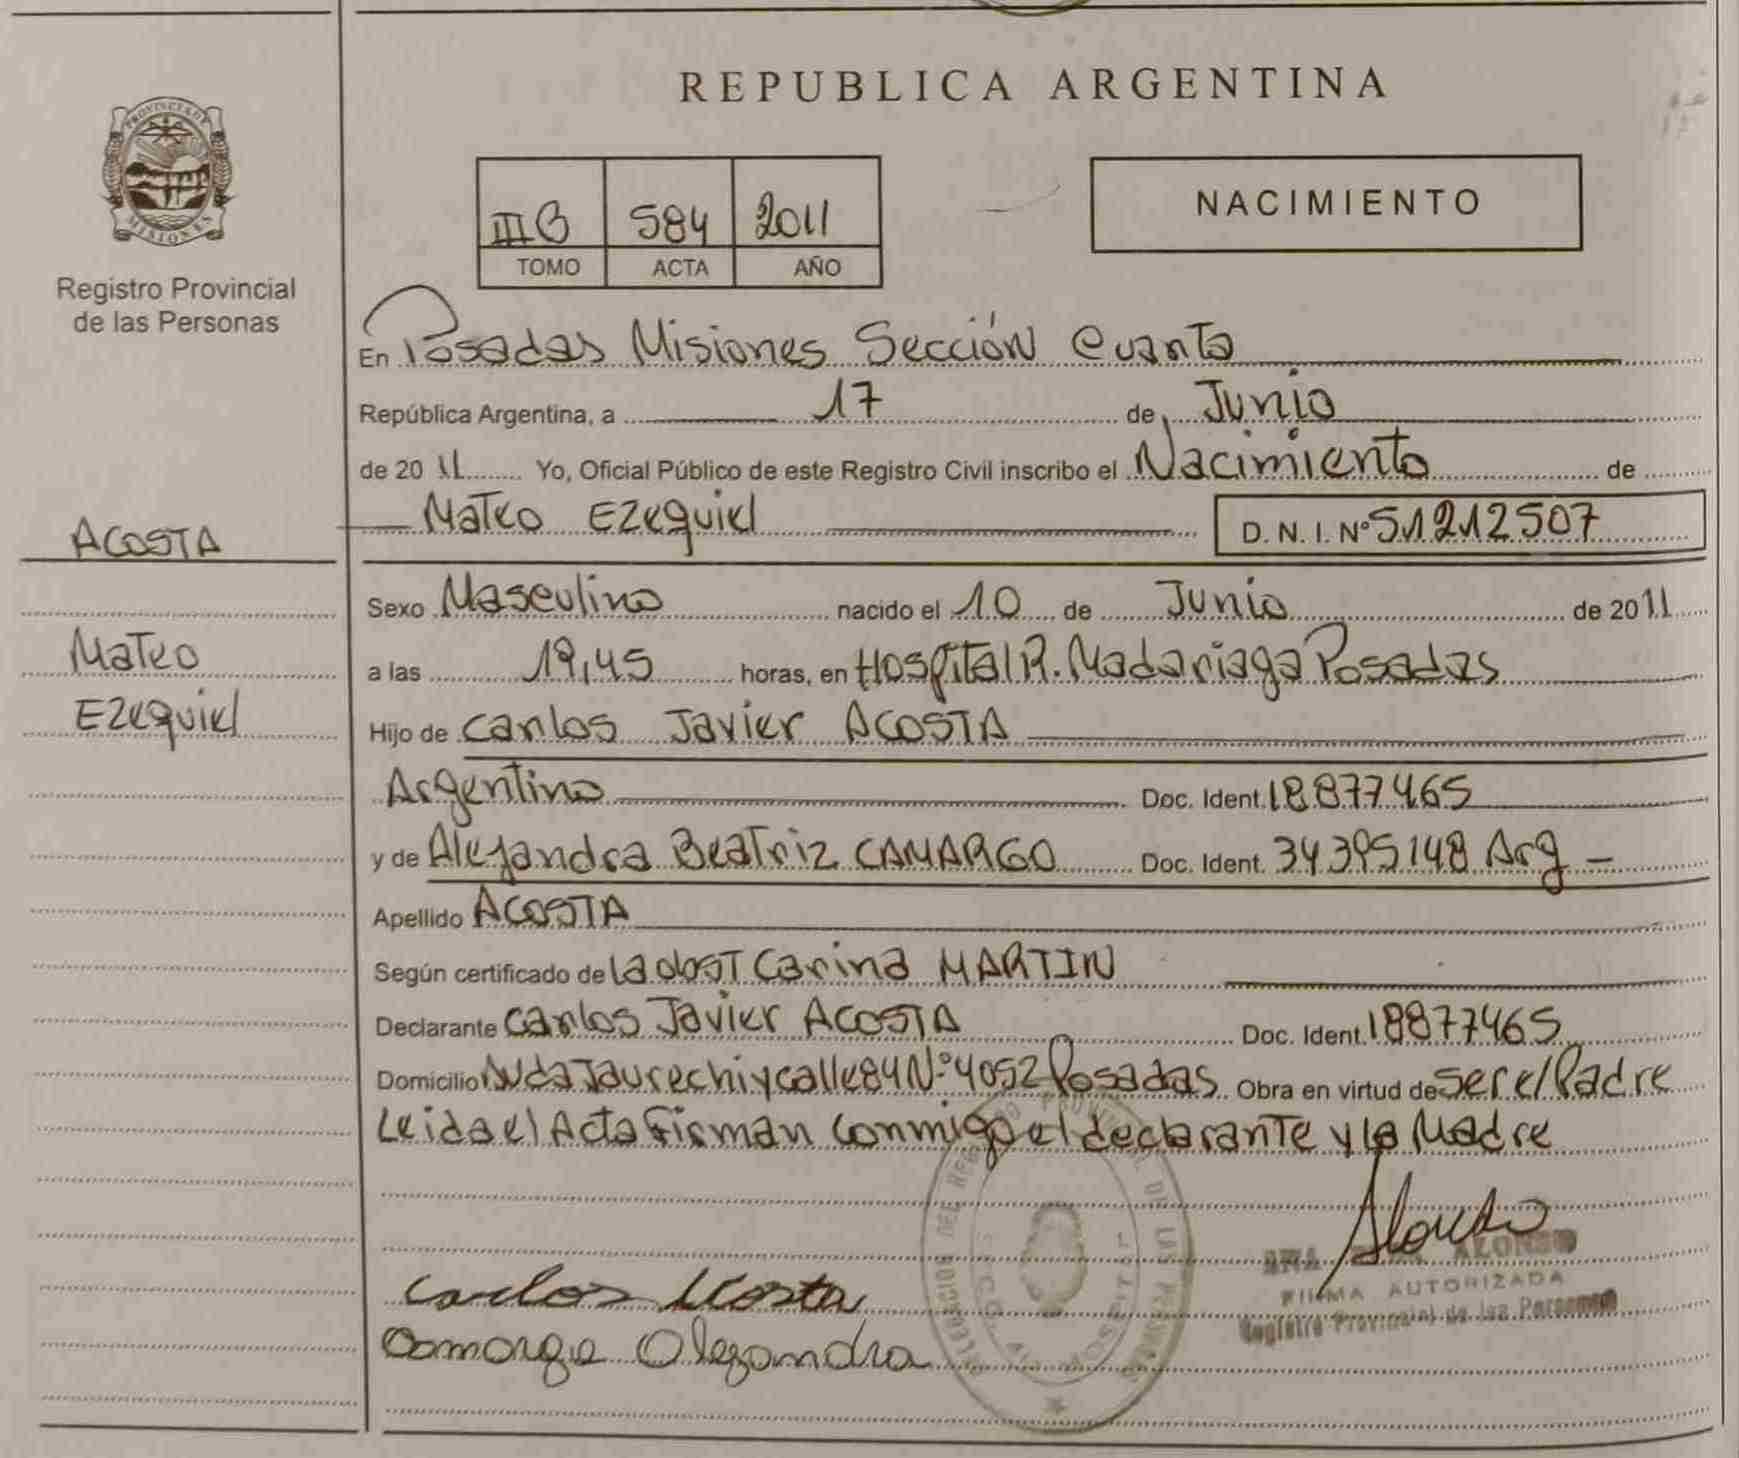 REPUBLICA ARGENTINA
PROVINCIA DE
MISIONES
Registro Provincial
de las Personas
NACIMIENTO
III B 584 2011
TOMO ACTA AÑO
En Posadas Misiones Sección Cuarta
República Argentina, a 17 de Junio
de 20 11 Yo, Oficial Público de este Registro Civil inscribo el Nacimiento de
Mateo Ezequiel D. N. I. Nº 51212507
ACOSTA
Mateo
Ezequiel
Sexo Masculino nacido el 10 de Junio de 2011
a las 19,45 horas, en Hospital R. Madariaga Posadas
Hijo de Carlos Javier ACOSTA
Argentino Doc. Ident. 18877465
y de Alejandra Beatriz CAMARGO Doc. Ident. 34395148 Arg
Apellido ACOSTA
Según certificado de la obst Carina MARTIN
Declarante Carlos Javier ACOSTA Doc. Ident. 18877465
Domicilio Avda Jaurechi y calle 84 Nº 4052 Posadas Obra en virtud de ser el Padre
Leida el Acta Firman Conmigo el declarante y la Madre
Carlos Acosta
Camargo Alejandra
ALONSO
FIRMA AUTORIZADA
Registro Provincial de las Personas